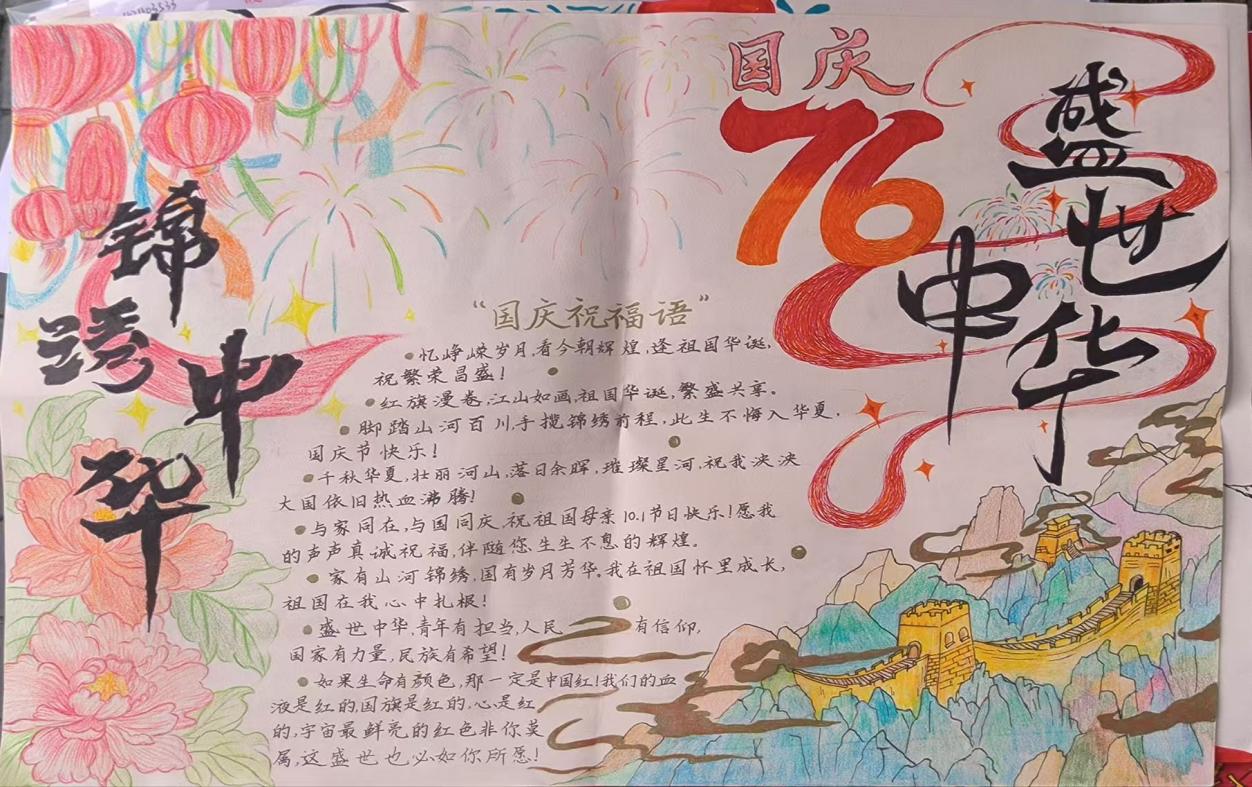 国庆
76
盛世
中华
锦绣
中华
“国庆祝福语”
忆峥嵘岁月,看今朝辉煌,逢祖国华诞,
祝繁荣昌盛!
红旗漫卷,江山如画,祖国华诞,繁盛共享。
脚踏山河百川,手揽锦绣前程,此生不悔入华夏,
国庆节快乐!
千秋华夏,壮丽河山,落日余晖,璀璨星河,祝我泱泱
大国依旧热血沸腾!
与家同在,与国同庆,祝祖国母亲10.1节日快乐!愿我
的声声真诚祝福,伴随您生生不息的辉煌。
家有山河锦绣,国有岁月芳华。我在祖国怀里成长,
祖国在我心中扎根!
盛世中华,青年有担当,人民有信仰,
国家有力量,民族有希望!
如果生命有颜色,那一定是中国红!我们的血
液是红的,国旗是红的,心是红
的,宇宙最鲜亮的红色非你莫
属,这盛世也必如你所愿!